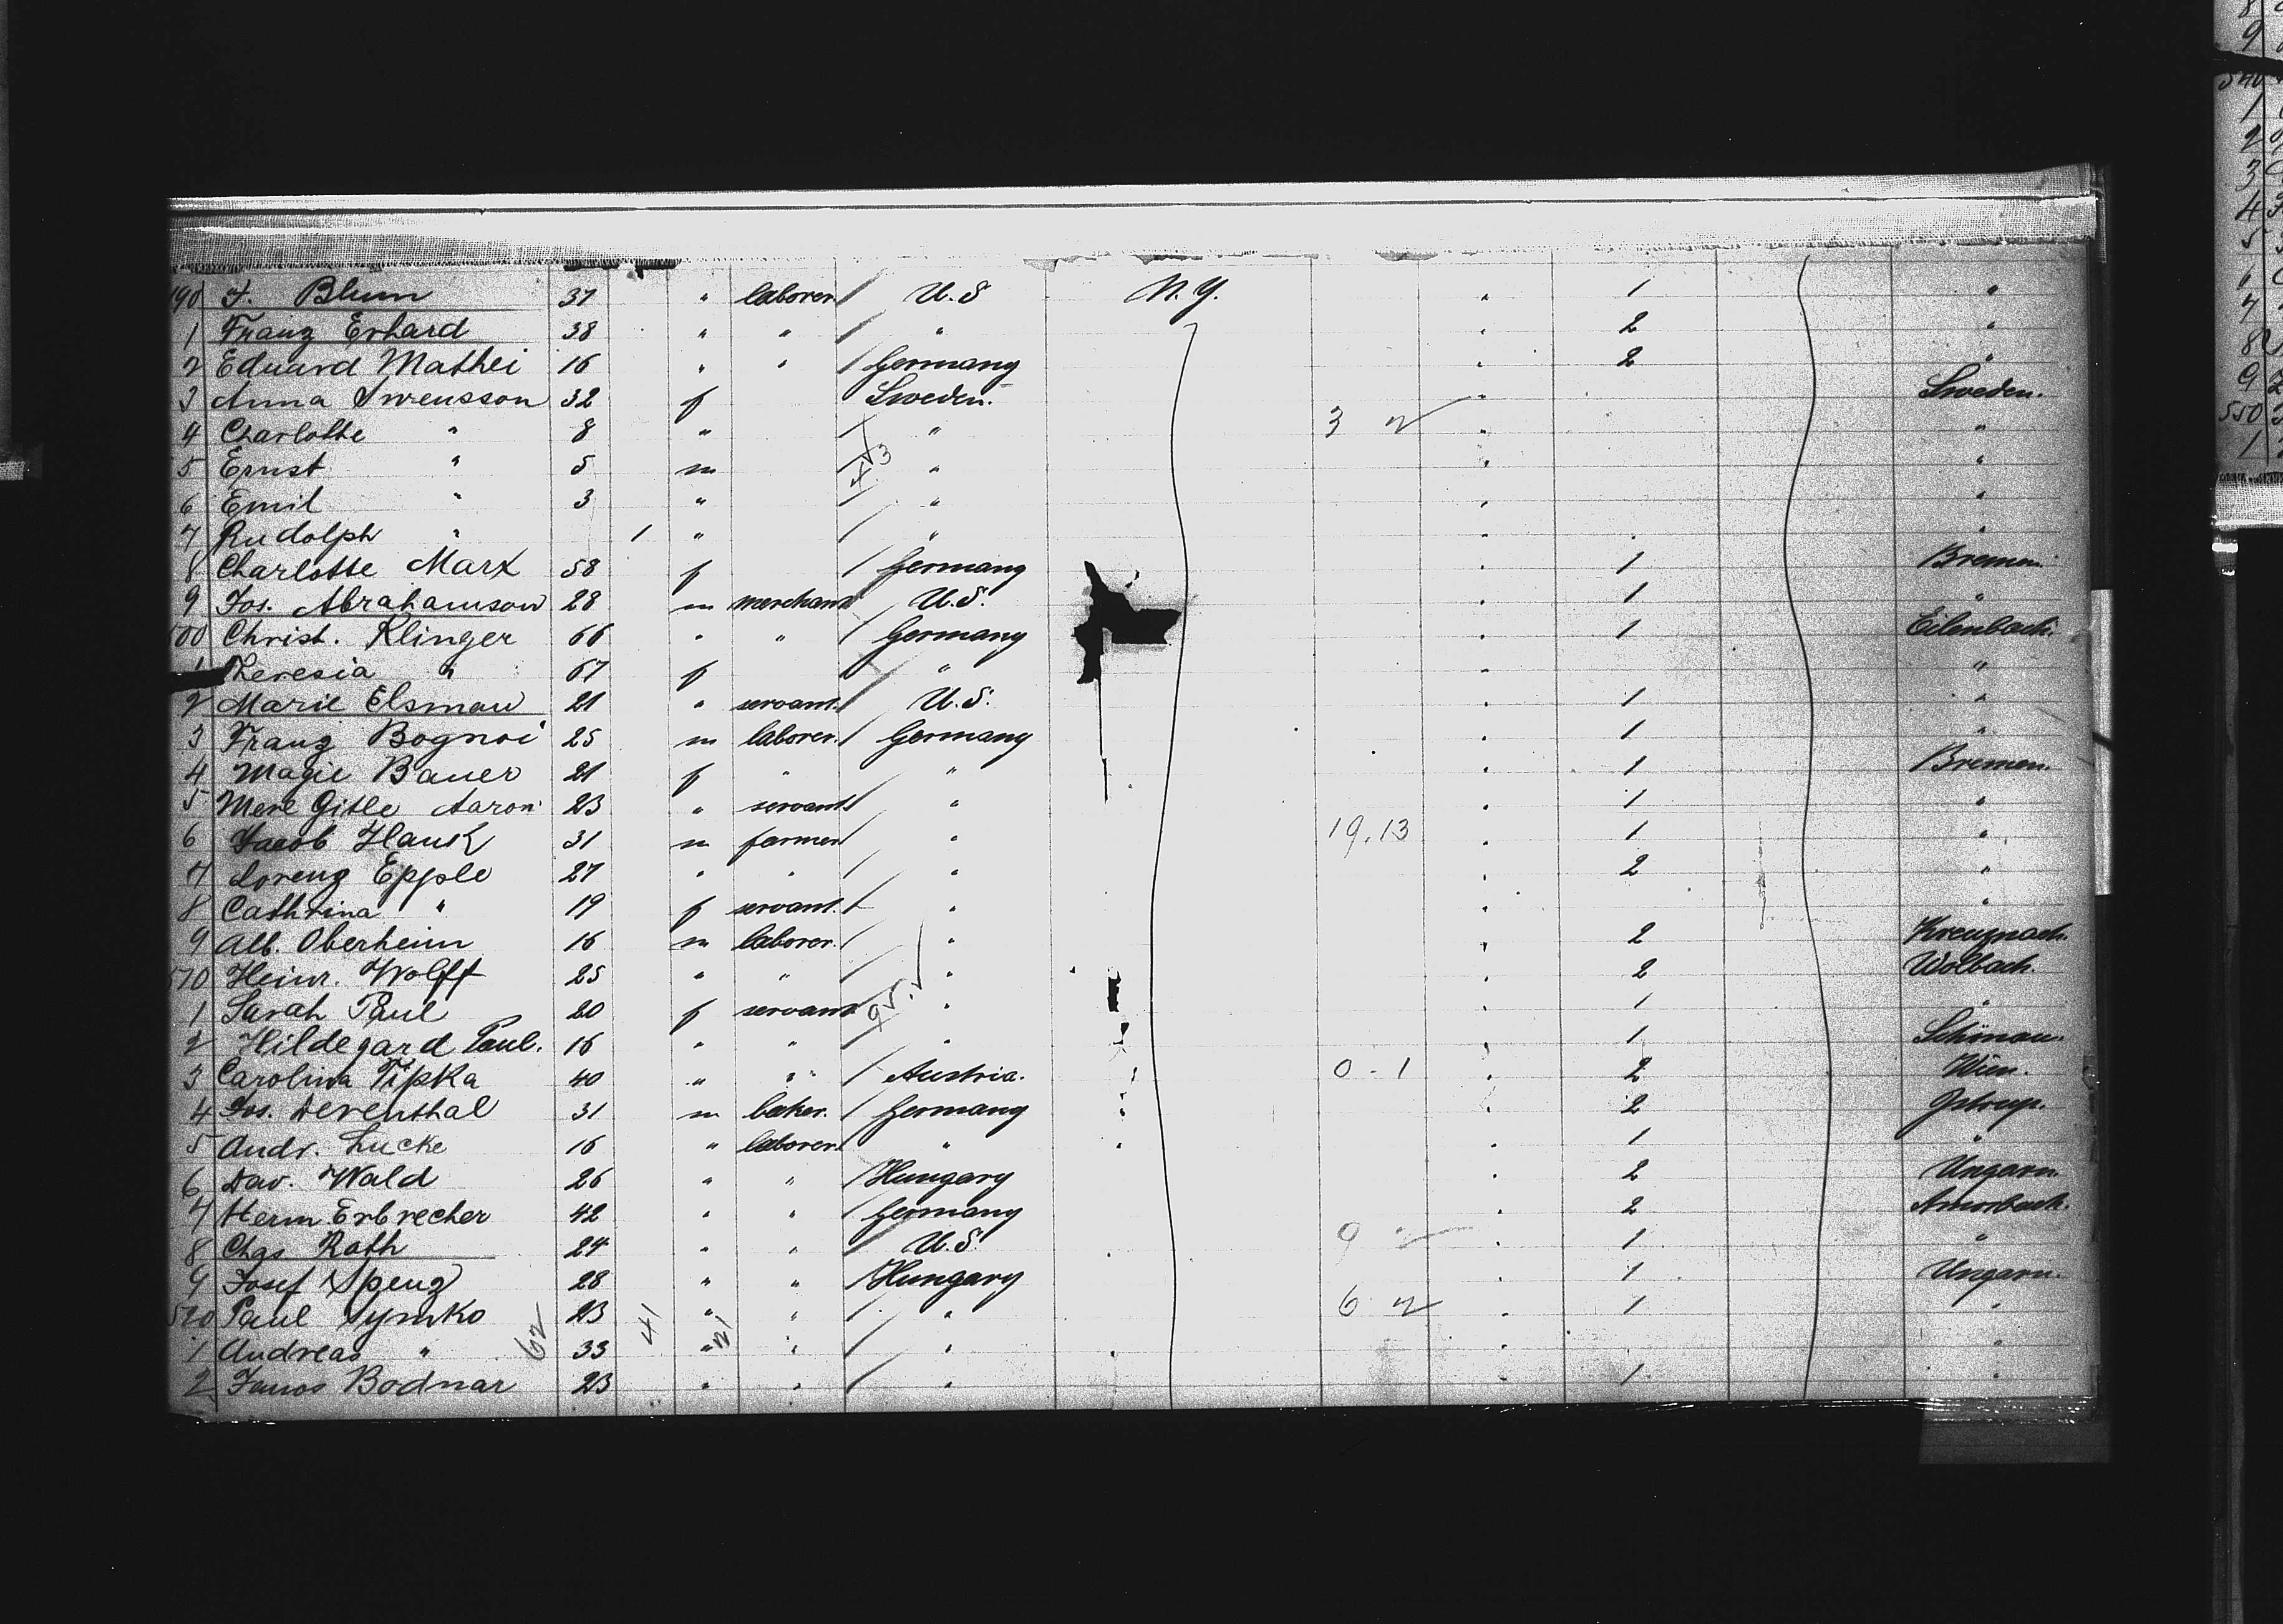 490 F. Blum 37 " laborer / U.S N.Y. " 1 "
1 Franz Erhard 38 " " / " " 2 "
2 Eduard Mathei 16 " " / Germany " 2 "
3 Anna Swensson 32 f Sweden. " Sweden.
4 Charlotte " 8 " / " 3 " "
5 Ernst " 5 m / " " "
6 Emil " 3 " / " " "
7 Rudolph " 1 " / " " "
8 Charlotte Marx 58 f / Germany " 1 Bremen.
9 Jos. Abrahamson 28 m merchant U.S. " 1 "
500 Christ. Klinger 66 " " / Germany " 1 Eilenbach.
1 Theresia " 67 f " " "
2 Marie Elsman 21 " servant / U.S. " 1 "
3 Franz Bognoi 25 m laborer. / Germany " 1 "
4 Magie Bauer 21 f " " " 1 Bremen.
5 Mere Gitle Aaron 23 " servant " " 1 "
6 Jacob Hauk 31 m farmer / " 19.13 " 1 "
7 Lorenz Epple 27 " " / " " 2 "
8 Cathrina " 19 f servant. / " " "
9 Alb. Oberheim 16 m laborer. / " " 2 Kreuznach.
510 Heinr. Wolff 25 " " / " " 2 Wolbach.
1 Sarah Paul 20 f servant " " 1 "
2 Hildegard Paul. 16 " " / " " 1 Schönau.
3 Carolina Tipka 40 " " / Austria. 0-1 " 2 Wien.
4 Jos. Derenthal 31 m baker. / Germany " 2
5 Andr. Lucke 16 " laborer. " " 1 "
6 Dav. Wald 26 " " / Hungary " 2 Ungarn.
7 Herm. Erbrecher 42 " " / Germany " 2 Amorbach.
8 Chas Rath 24 " " / U.S. 9 " 1 "
9 Josef Spenz 28 " " / Hungary " 1 Ungarn.
520 Paul Symko 23 " " / " 6 " 1 "
1 Andreas " 62 33 41 " 21 " / " " "
2 Janos Bodnar 23 " " / " " 1 "